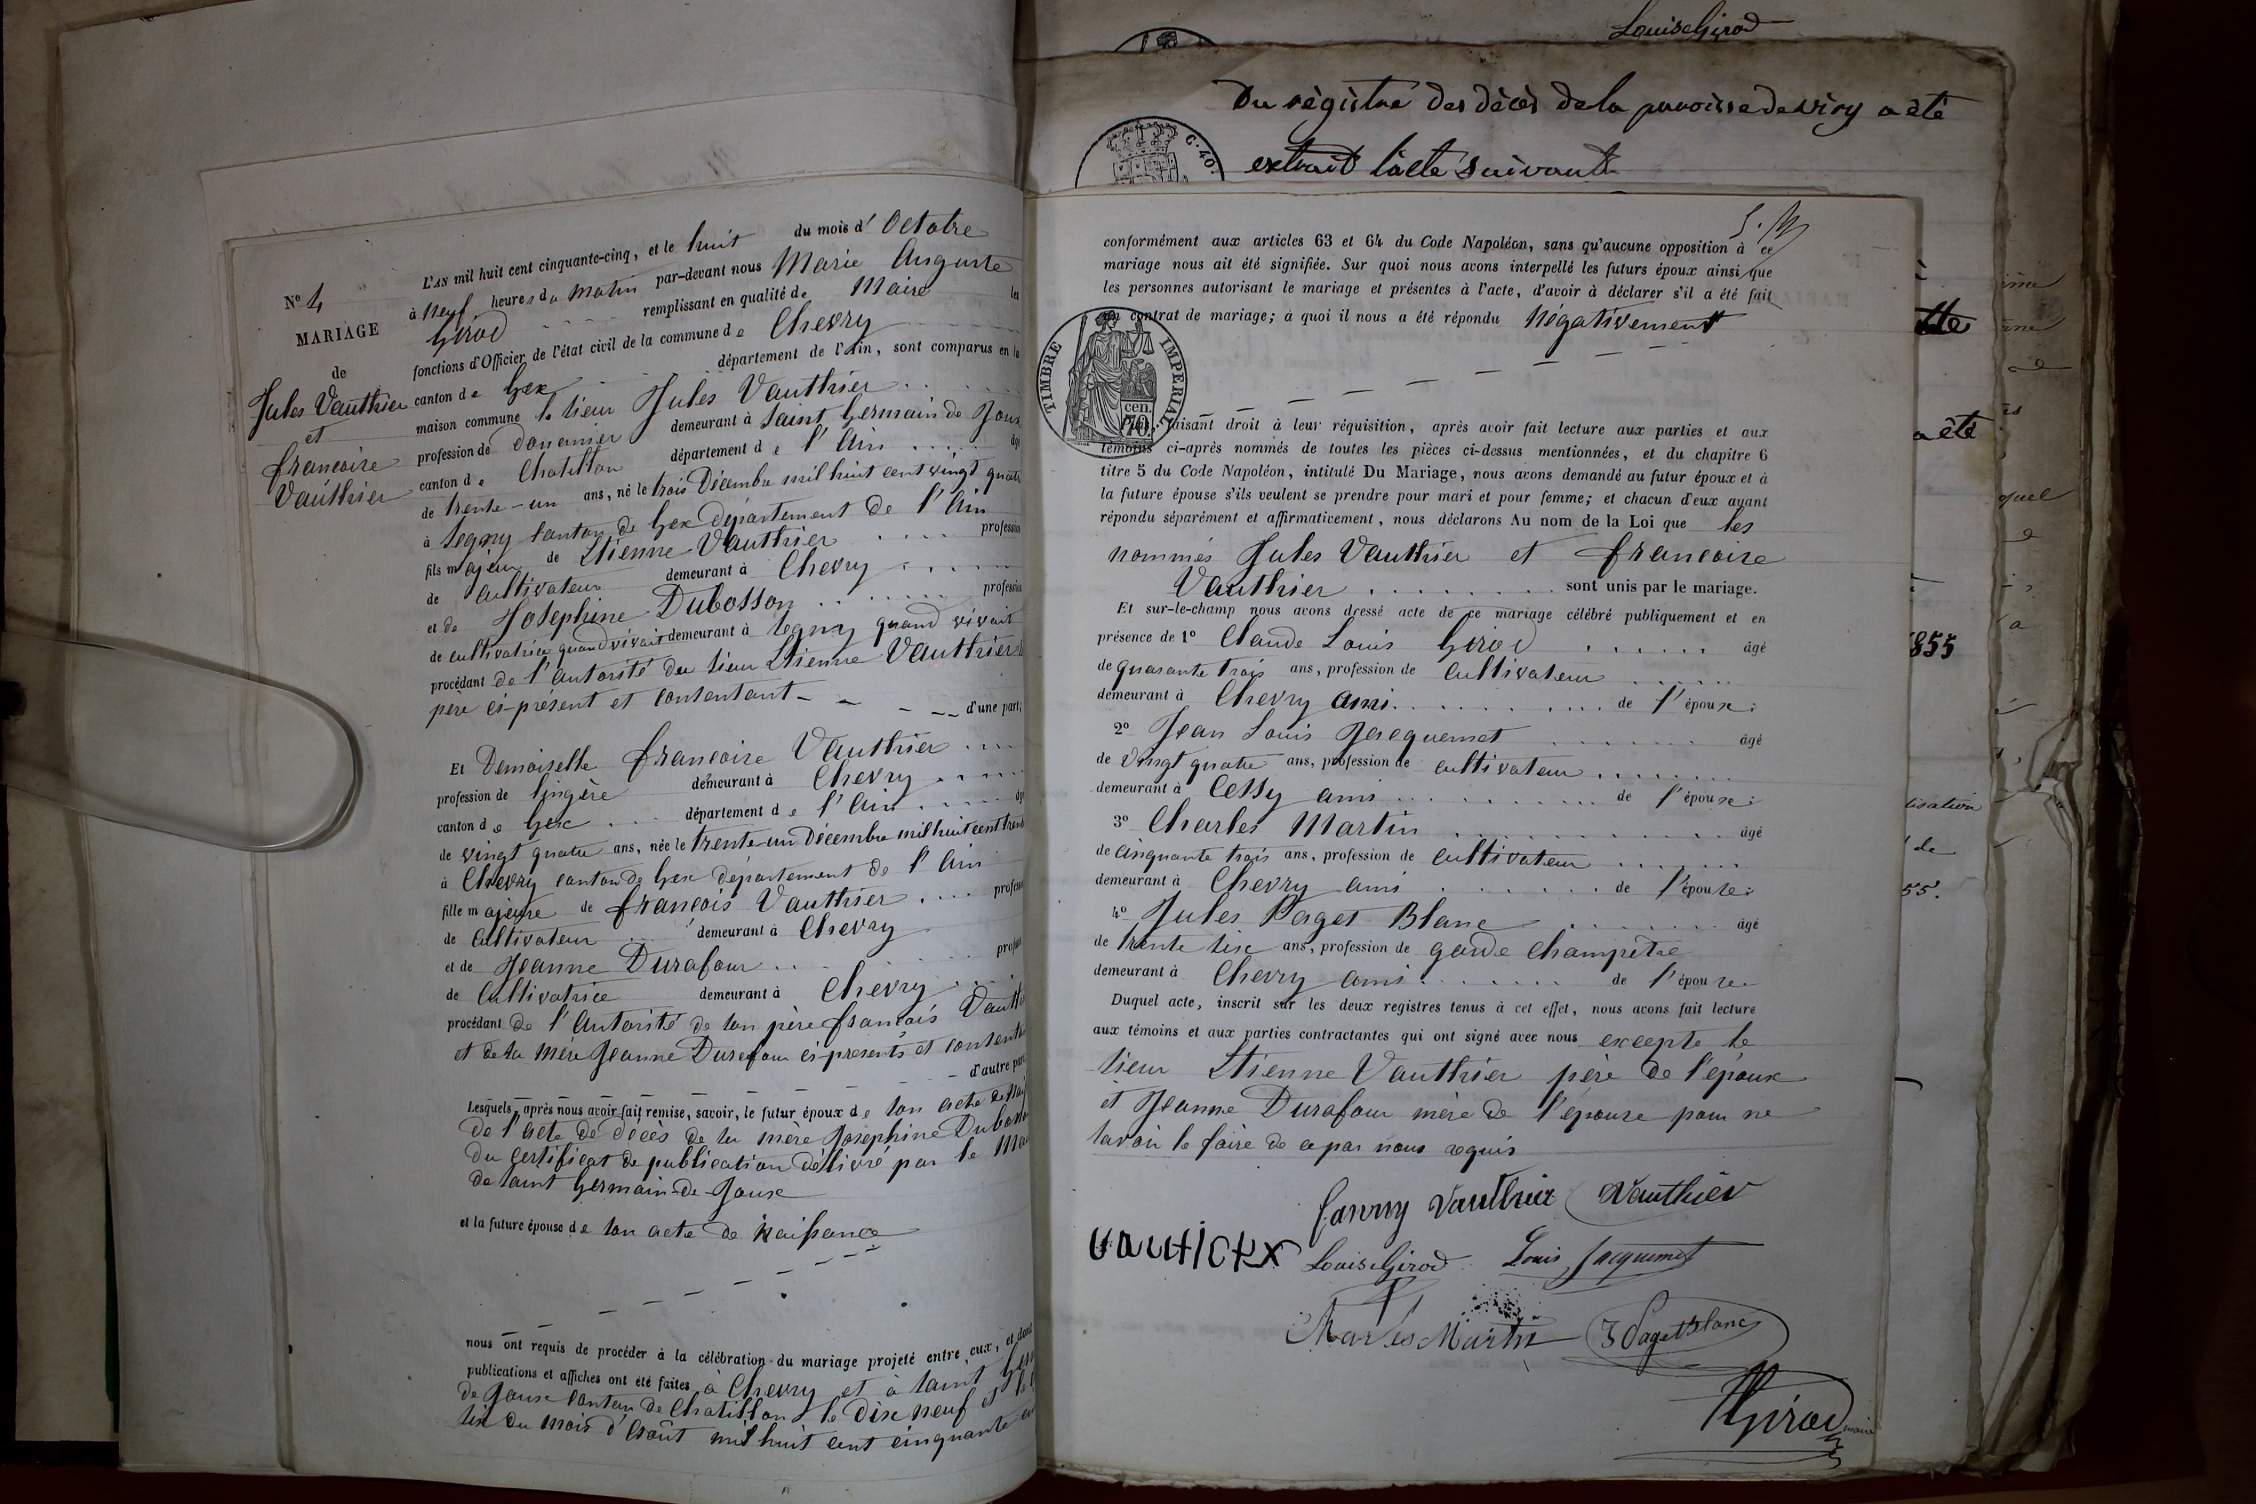 Louis Girod
Du règistre des décès de la parroisse de Viry a été
extrait l'acte suivant
C. 40.
N° 4
MARIAGE
de
Jules Vauthier
et
francoise
Vauthier
L'AN mil huit cent cinquante-cinq, et le huit du mois d' Octobre
à neuf heures du matin par-devant nous Marie Auguste
Girod remplissant en qualité de Maire les
fonctions d'Officier de l'état civil de la commune de Chevry
canton de Gex département de l'Ain, sont comparus en la
maison commune le sieur Jules Vauthier
profession de douanier demeurant à Saint Germain de Joux
canton de Chatillon département de l'Ain âgé
de trente-un ans, né le trois Décembre mil huit cent vingt quatre
à Segny canton de Gex département de l'Ain
fils majeur de Etienne Vauthier profession
de Cultivateur demeurant à Chevry
et de Josephine Dubosson profession
de cultivatrice quand vivait demeurant à Segny quand vivait
procédant de l'autorité du sieur Etienne Vauthier
père ci-présent et consentant d'une part;
Et Demoiselle francoise Vauthier
profession de lingère demeurant à Chevry
canton de Gex département de l'Ain âgé
de vingt quatre ans, née le trente-un Décembre mil huit cent trente
à Chevry canton de Gex département de l'Ain
fille majeure de francois Vauthier profession
de Cultivateur demeurant à Chevry
et de Jeanne Durafour profession
de Cultivatrice demeurant à Chevry
procédant de l'Autorité de son père francois Vauthier
et de sa mère Jeanne Durafour ci-présents et consentants
d'autre part
Lesquels, après nous avoir fait remise, savoir, le futur époux de son acte de
de l'acte de décès de sa mère Josephine Dubosson
du certificat de publication délivré par le Maire
de Saint Germain-de-Joux
et la future épouse de son acte de naissance
nous ont requis de procéder à la célébration du mariage projeté entre eux, et dont
publications et affiches ont été faites à Chevry et à Saint Germain
de Joux canton de Chatillon le dix neuf et le vingt
six du mois d'Août mil huit cent cinquante cinq
conformément aux articles 63 et 64 du Code Napoléon, sans qu'aucune opposition à ce
mariage nous ait été signifiée. Sur quoi nous avons interpellé les futurs époux ainsi que
les personnes autorisant le mariage et présentes à l'acte, d'avoir à déclarer s'il a été fait
un contrat de mariage; à quoi il nous a été répondu négativement
TIMBRE IMPERIAL
cen. 70.
faisant droit à leur réquisition, après avoir fait lecture aux parties et aux
témoins ci-après nommés de toutes les pièces ci-dessus mentionnées, et du chapitre 6
titre 5 du Code Napoléon, intitulé Du Mariage, nous avons demandé au futur époux et à
la future épouse s'ils veulent se prendre pour mari et pour femme; et chacun d'eux ayant
répondu séparément et affirmativement, nous déclarons Au nom de la Loi que les
nommés Jules Vauthier et francoise
Vauthier sont unis par le mariage.
Et sur-le-champ nous avons dressé acte de ce mariage célébré publiquement et en
présence de 1° Claude Louis Girod âgé
de quarante trois ans, profession de cultivateur
demeurant à Chevry ami de l'épouse;
2° Jean Louis Jacquemet âgé
de vingt quatre ans, profession de cultivateur
demeurant à Cessy ami de l'épouse;
3° Charles Martin âgé
de cinquante trois ans, profession de cultivateur
demeurant à Chevry ami de l'épouse;
4° Jules Paget Blanc âgé
de trente six ans, profession de garde Champêtre
demeurant à Chevry ami de l'épouse
Duquel acte, inscrit sur les deux registres tenus à cet effet, nous avons fait lecture
aux témoins et aux parties contractantes qui ont signé avec nous excepté le
sieur Etienne Vauthier père de l'époux
et Jeanne Durafour mère de l'épouse pour ne
savoir le faire de ce par nous requis
fanny Vauthier Vauthier
Louis Girod Louis Jacquemet
Charles Martin J Paget Blanc
Girod maire
a été
1855
55.
quel